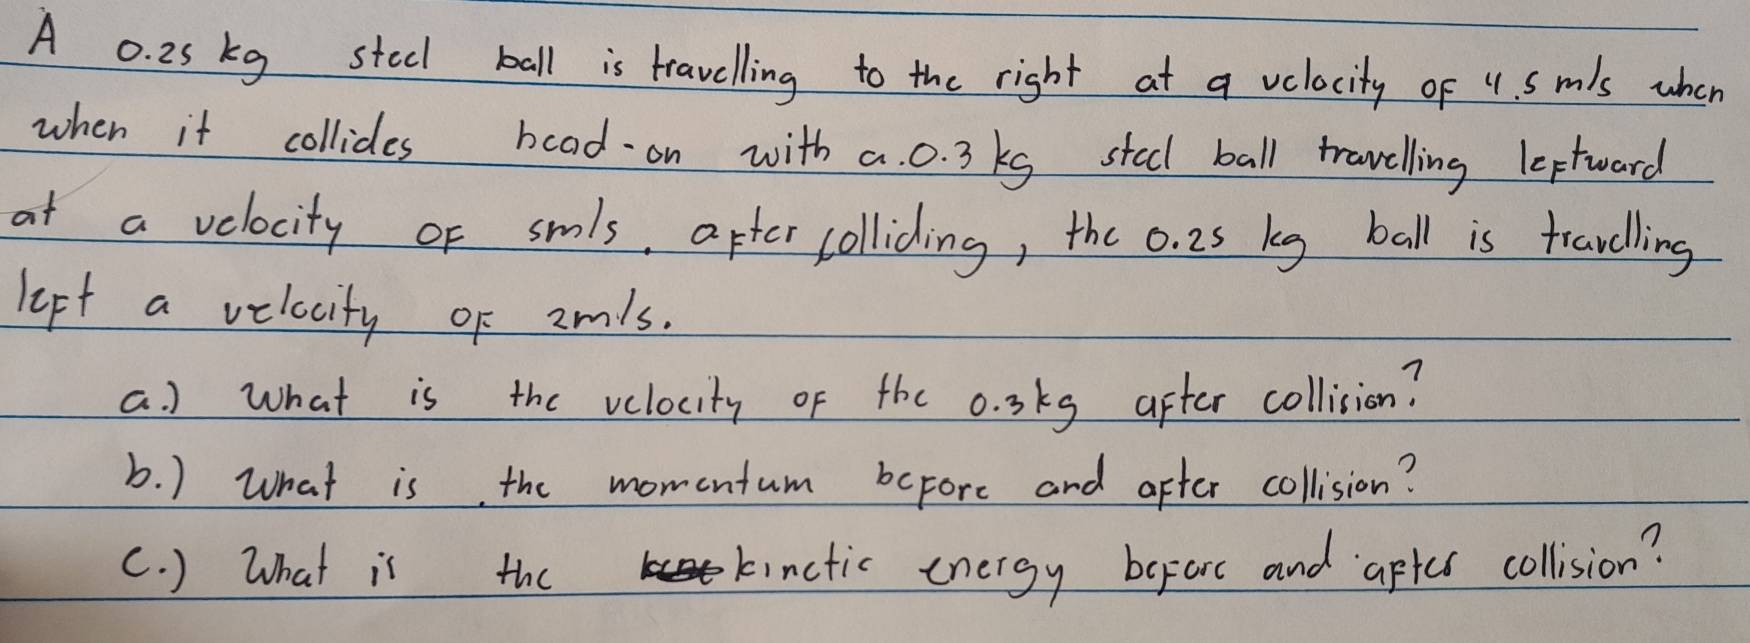 A 0.25 kg steel ball is travelling to the right at a velocity of 4.5 m/s when
when it collides head-on with a 0.3 kg steel ball travelling leftward
at a velocity of 5m/s. after colliding, the 0.25 kg ball is travelling
left a velocity of 2m/s.
a.) What is the velocity of the 0.3kg after collision?
b.) What is the momentum before and after collision?
c.) What is the kinetic energy before and after collision?